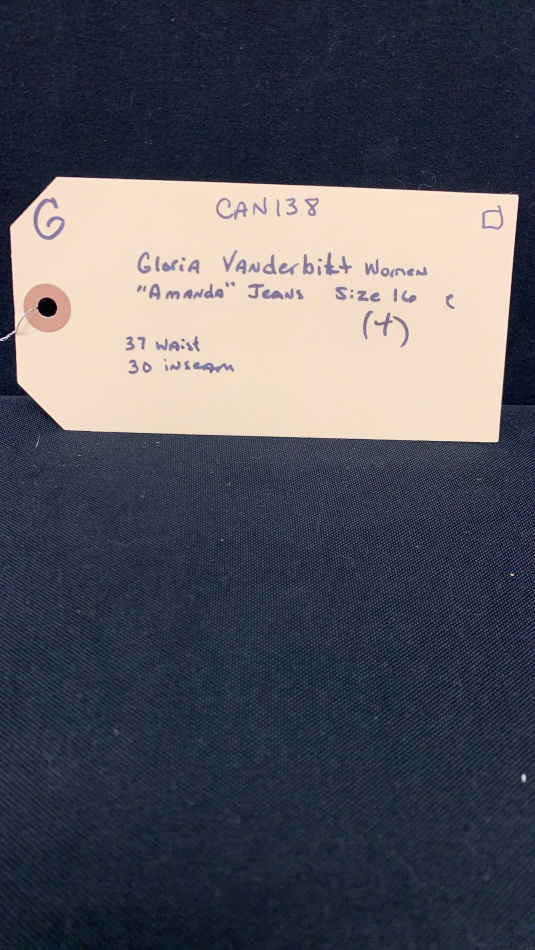 G
CAN138
Gloria Vanderbilt Women
"Amanda" Jeans Size 16
(4)
37 Waist
30 inseam